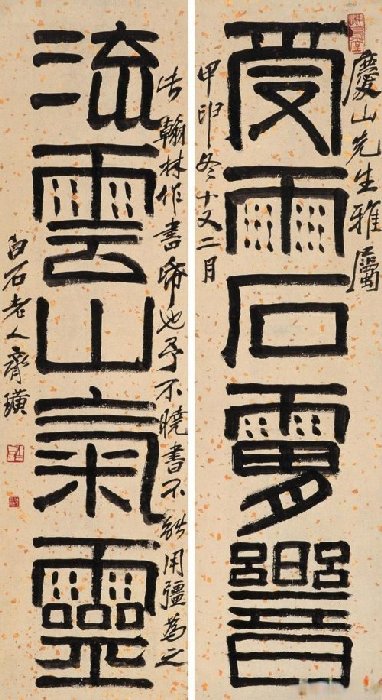 慶山先生雅屬
受雨石
甲申冬十又二月
此翰林作書帋也予不曉書不能用彊為之
流雲山氣靈
白石老人齊璜